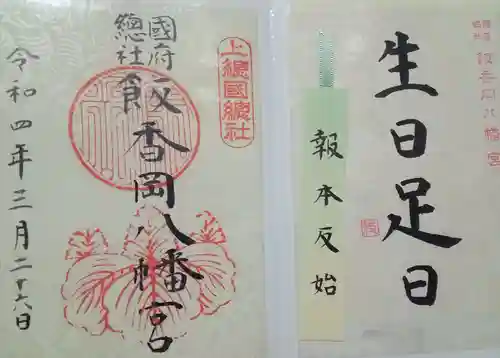 上總國總社
國府
總社
飯香岡八幡宮
令和四年三月二十六日
飯香岡八幡宮
生日足日
報本反始